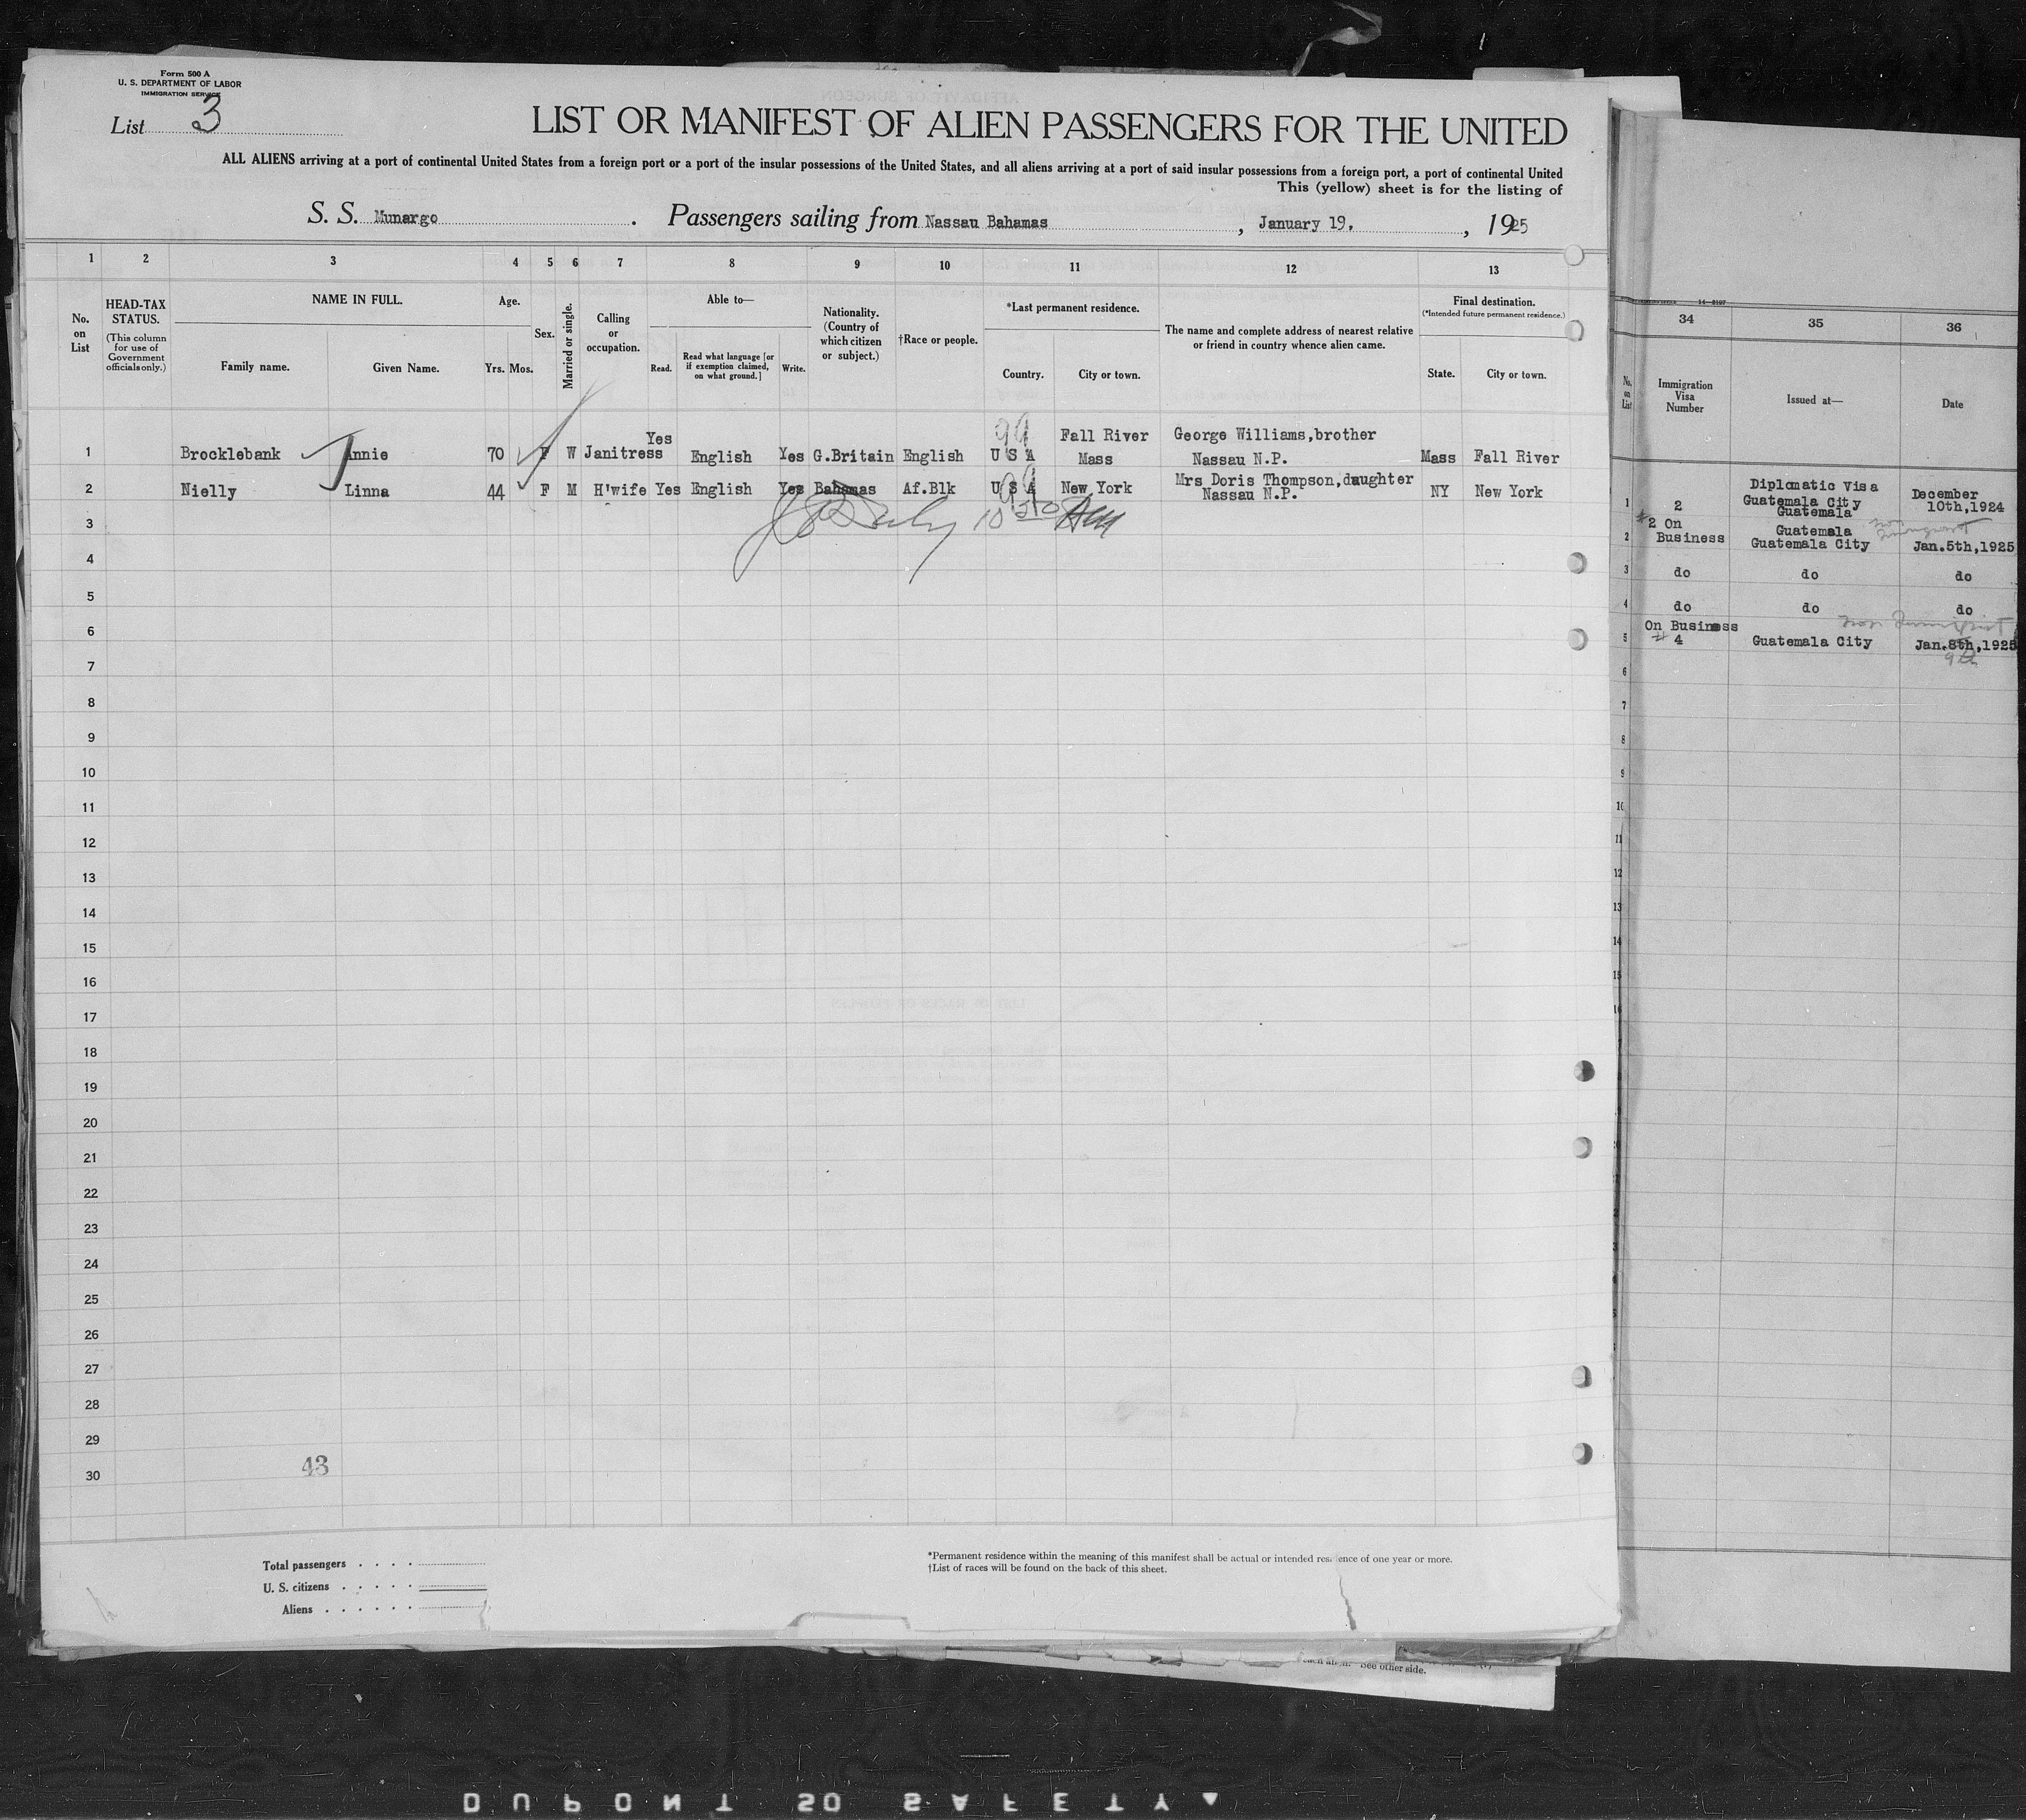 Form 500 A
U. S. DEPARTMENT OF LABOR
IMMIGRATION SERVICE
List 3
LIST OR MANIFEST OF ALIEN PASSENGERS FOR THE UNITED
ALL ALIENS arriving at a port of continental United States from a foreign port or a port of the insular possessions of the United States, and all aliens arriving at a port of said insular possessions from a foreign port, a port of continental United
This (yellow) sheet is for the listing of
S. S. Munargo . Passengers sailing from Nassau Bahamas , January 19. , 1925
1 2 3 4 5 6 7 8 9 10 11 12 13
No. on List
HEAD-TAX STATUS. (This column for use of Government officials only.)
NAME IN FULL. Family name. Given Name.
Age. Yrs. Mos.
Sex.
Married or single.
Calling or occupation.
Able to— Read. Read what language [or if exemption claimed, on what ground.] Write.
Nationality. (Country of which citizen or subject.)
†Race or people.
*Last permanent residence. Country. City or town.
The name and complete address of nearest relative or friend in country whence alien came.
Final destination. (*Intended future permanent residence.) State. City or town.
1 Brocklebank Annie 70 F W Janitress Yes English Yes G.Britain English U S A Fall River Mass George Williams,brother Nassau N.P. Mass Fall River
99
2 Nielly Linna 44 F M H'wife Yes English Yes Bahamas Af.Blk U S A New York Mrs Doris Thompson,daughter Nassau N.P. NY New York
99
3
4
5
6
7
8
9
10
11
12
13
14
15
16
17
18
19
20
21
22
23
24
25
26
27
28
29
30
43
Total passengers
U. S. citizens
Aliens
*Permanent residence within the meaning of this manifest shall be actual or intended residence of one year or more.
†List of races will be found on the back of this sheet.
34 35 36
No. on List
Immigration Visa Number
Issued at—
Date
1 2 Diplomatic Visa Guatemala City Guatemala December 10th,1924
2 #2 On Business Guatemala Guatemala City Jan.5th,1925
3 do do do
4 do do do
5 On Business # 4 Guatemala City Jan.8th,1925
9th
6
7
8
9
10
11
12
13
14
15
16
See other side.
DUPONT SO SAFETY